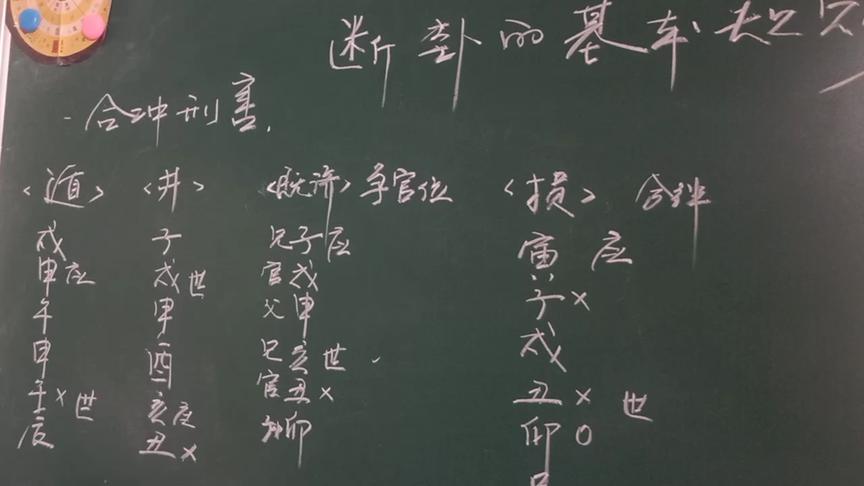 断卦的基本规
一合冲刑害.
<遁>
戌
申应
午
申
午×世
辰
<井>
子
戌世
申
酉
亥应
丑×
<既济>争官位
兄子应
官戌
父申
兄亥世
官丑×
卯
<损> 合绊
寅 应
子×
戌
丑× 世
卯O